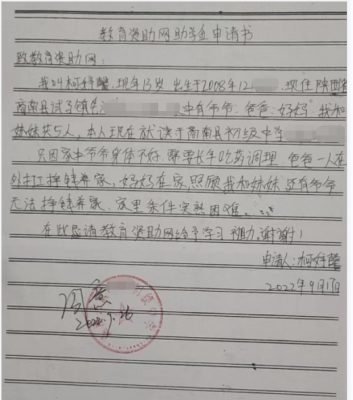 教育资助网助学金申请书
致教育资助网：
我叫柯梓馨，现年13岁，出生于2008年12 现住陕西省
商南县试马镇 中有爷爷、爸爸、妈妈、我和
妹妹共5人，本人现在就读于商南县初级中学
只因家中爷爷身体不好，需要长年吃药调理，爸爸一人在
外打工挣钱养家，妈妈在家照顾我和妹妹还有爷爷
无法挣钱养家，家里条件实熟困难。
在此恳请教育资助网给予学习 谢谢！
申请人：柯梓馨
2022年9月17日
同意
2022.9.26